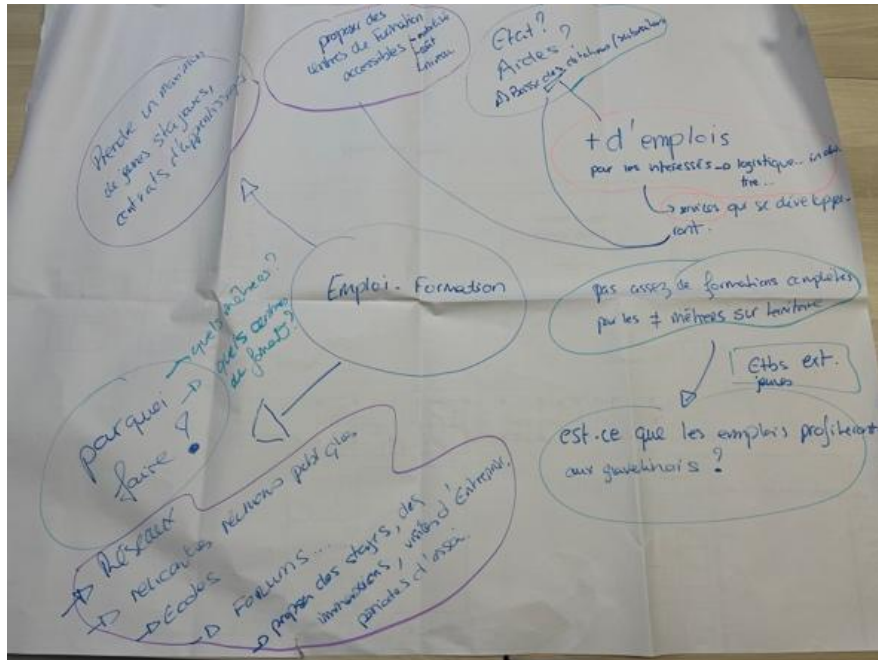 Prendre un maximum
de jeunes stagiaires,
contrats d'apprentissage
proposer des
centres de formation
accessibles → mobilité
→ coût
→ niveau
Etat ?
Aides ?
→ Baisse des cotisations /
+ d'emplois
par les intéressés → logistique.. indus
trie...
→ services qui se développe-
ront.
Emploi - Formation
pas assez de formations complètes
par les ≠ métiers sur territoire
Etbs ext.
jeunes
est-ce que les emplois profiteront
aux gravelinois ?
pourquoi
faire ?
→ quels métiers ?
→ quels centres
de format° ?
→ Réseaux
→ rencontres réunions publiques
→ Ecoles
→ Forums...
→ proposer des stages, des
immersions, visites d'Entreprise,
périodes d'essai.